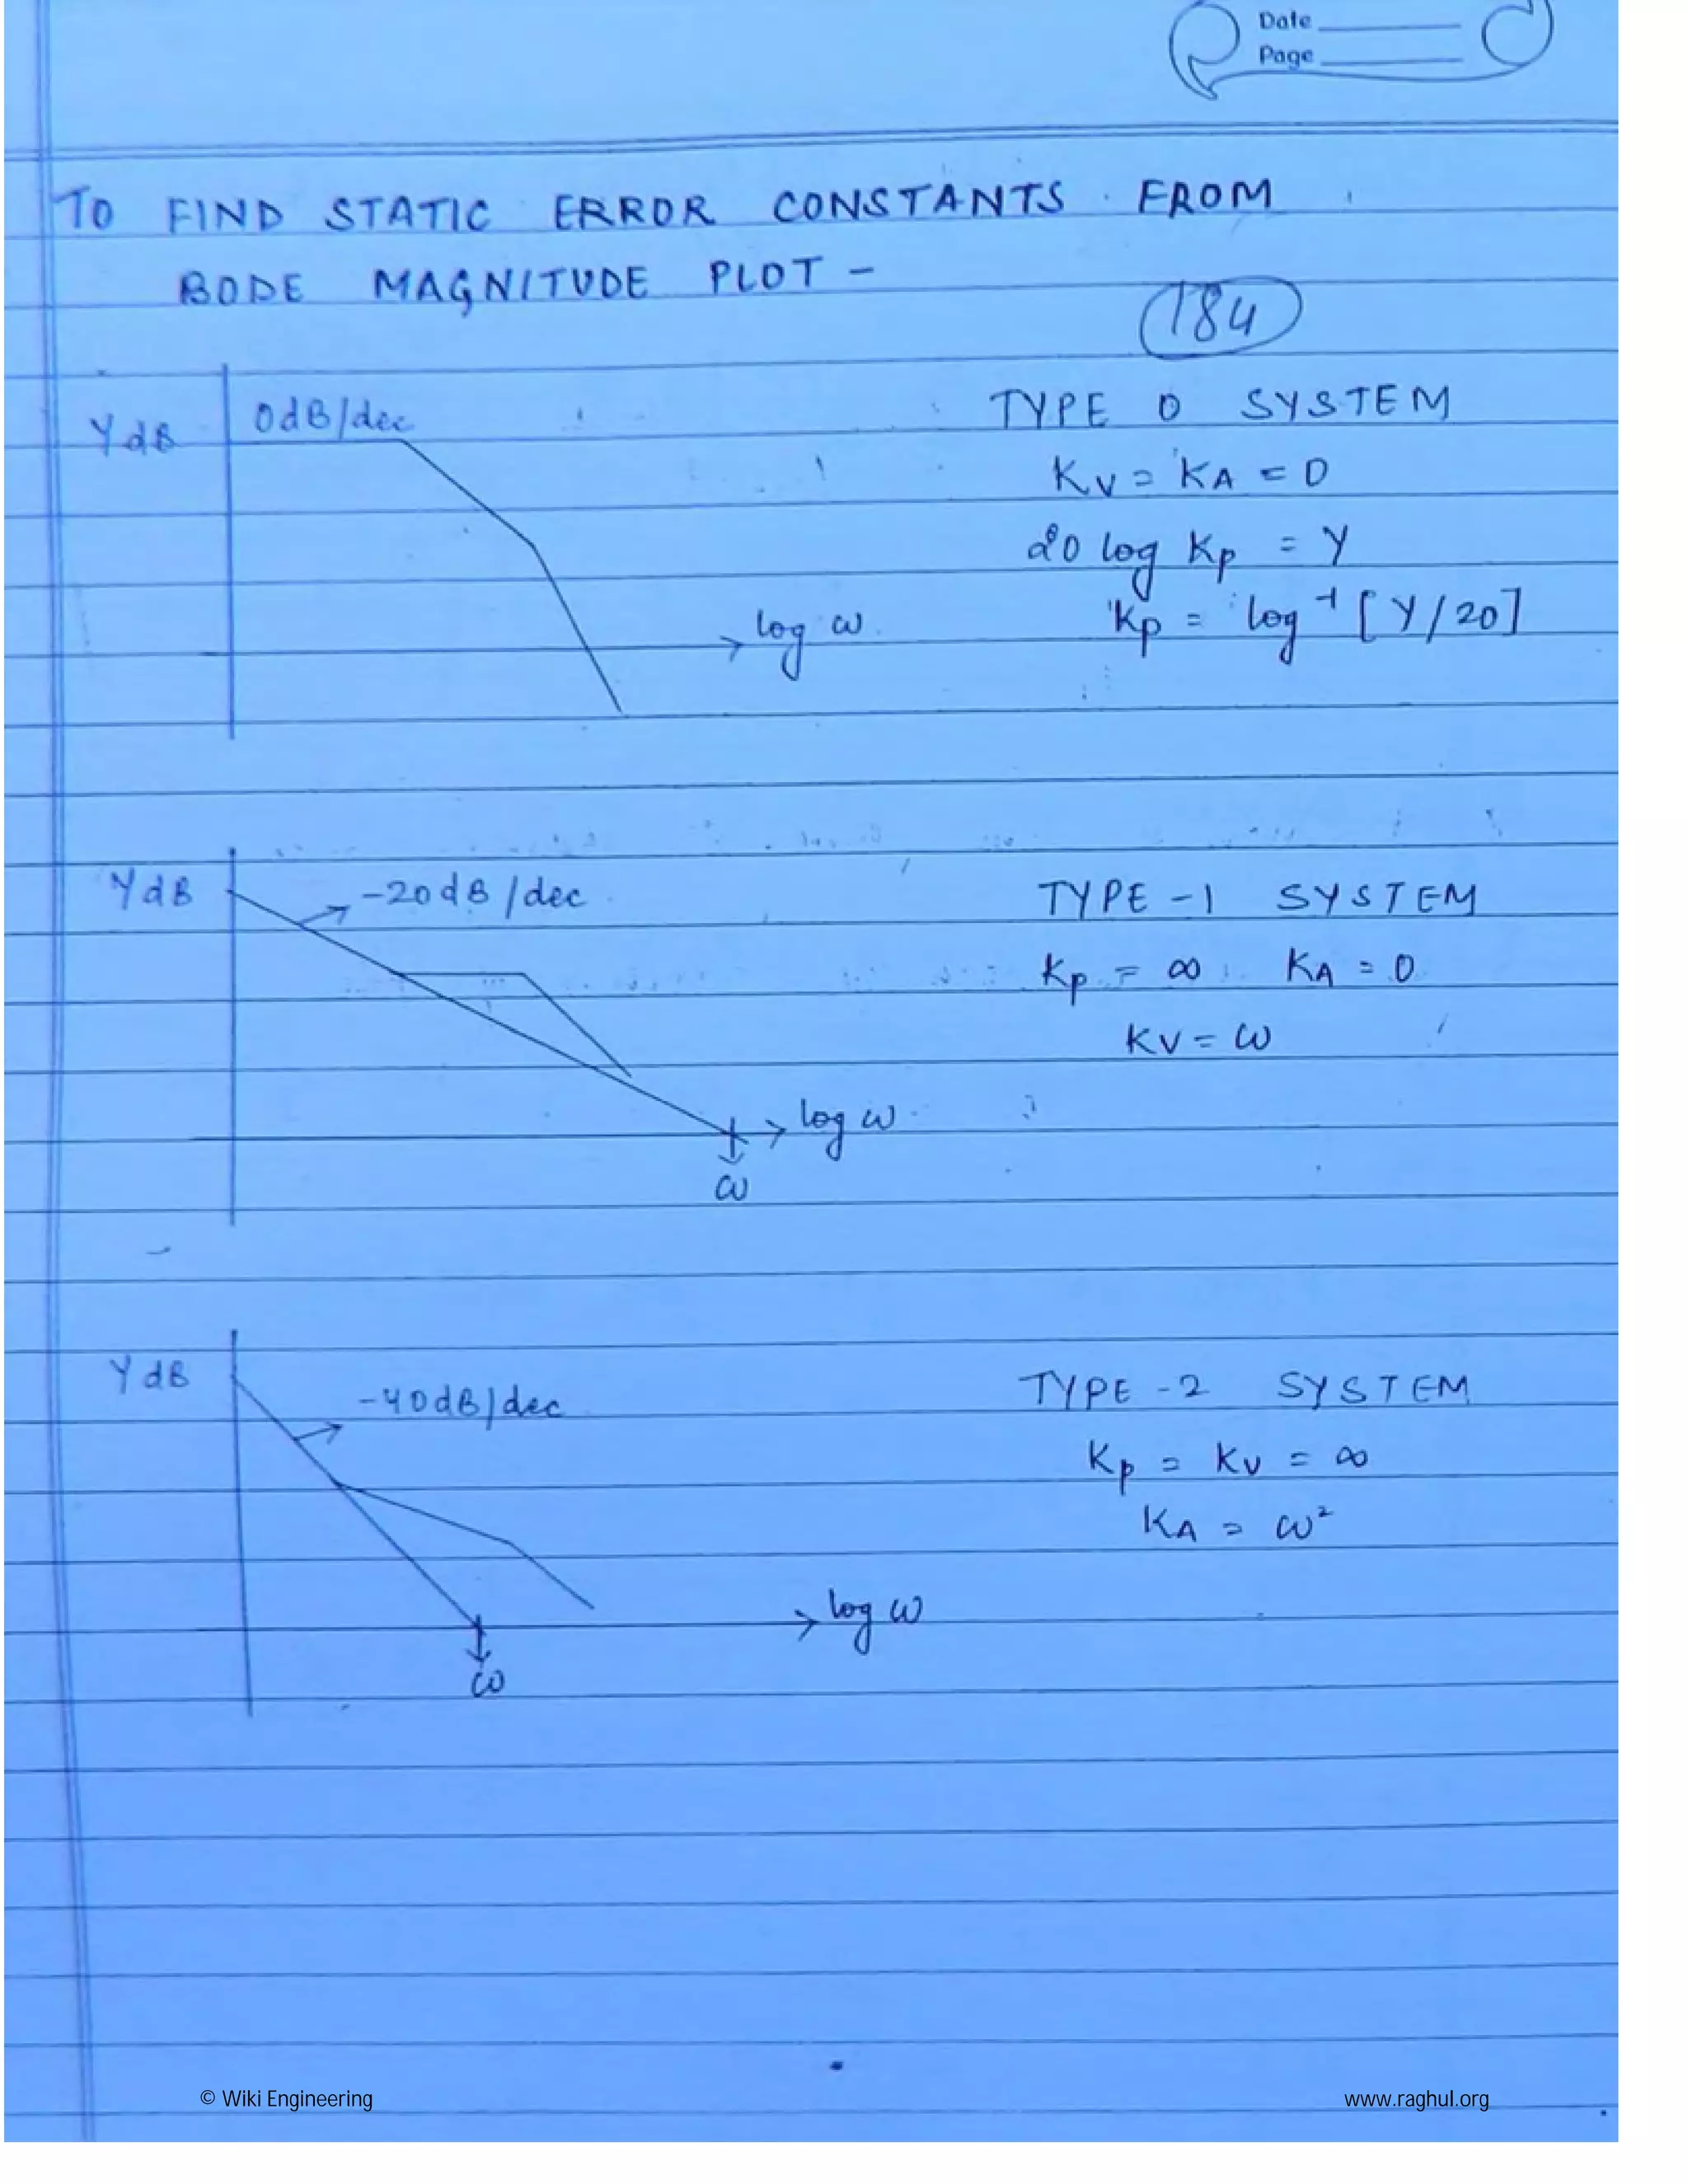 Date
Page
TO FIND STATIC ERROR CONSTANTS FROM
BODE MAGNITUDE PLOT -
184
Y dB
0dB/dec
log ω
TYPE 0 SYSTEM
Kv = KA = 0
20 log Kp = Y
Kp = log⁻¹ [Y/20]
Y dB
-20dB/dec
log ω
ω
TYPE -1 SYSTEM
Kp = ∞ KA = 0
KV = ω
Y dB
-40dB/dec
log ω
ω
TYPE -2 SYSTEM
Kp = Kv = ∞
KA = ω²
© Wiki Engineering
www.raghul.org